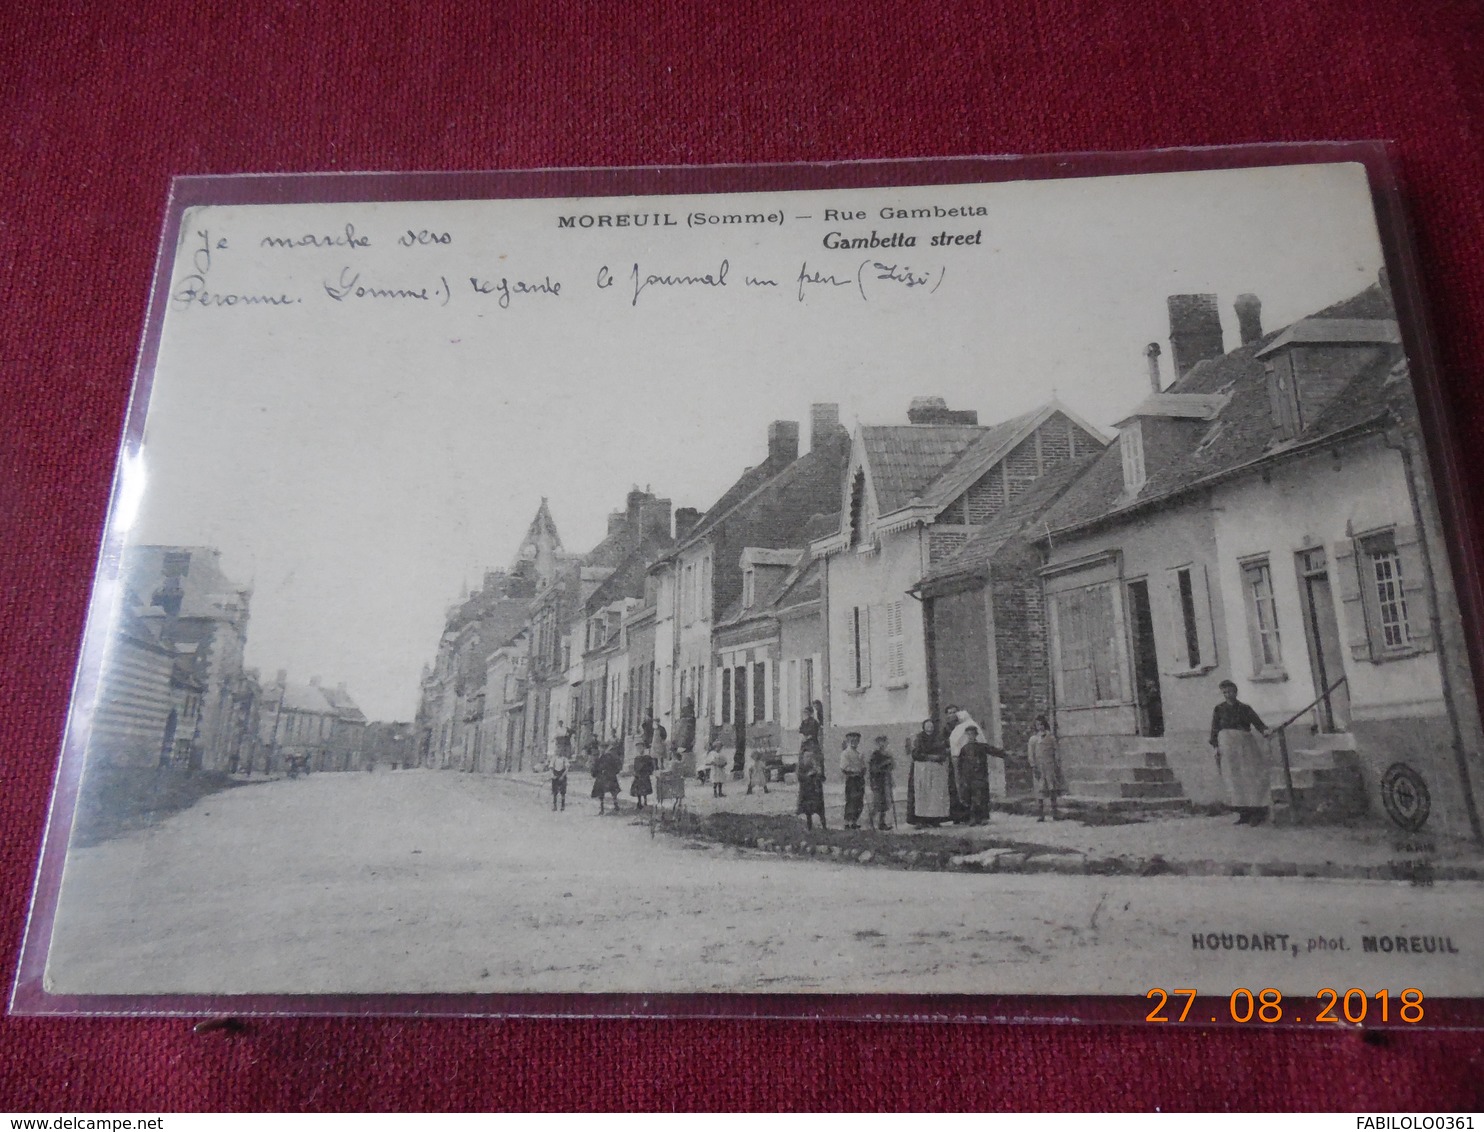 MOREUIL (Somme) — Rue Gambetta
Gambetta street
Je marche vers
Péronne. (Somme.) regarde le journal un peu (Zizi)
PARIS
HOUDART, phot. MOREUIL
27.08.2018
FABILOLO0361